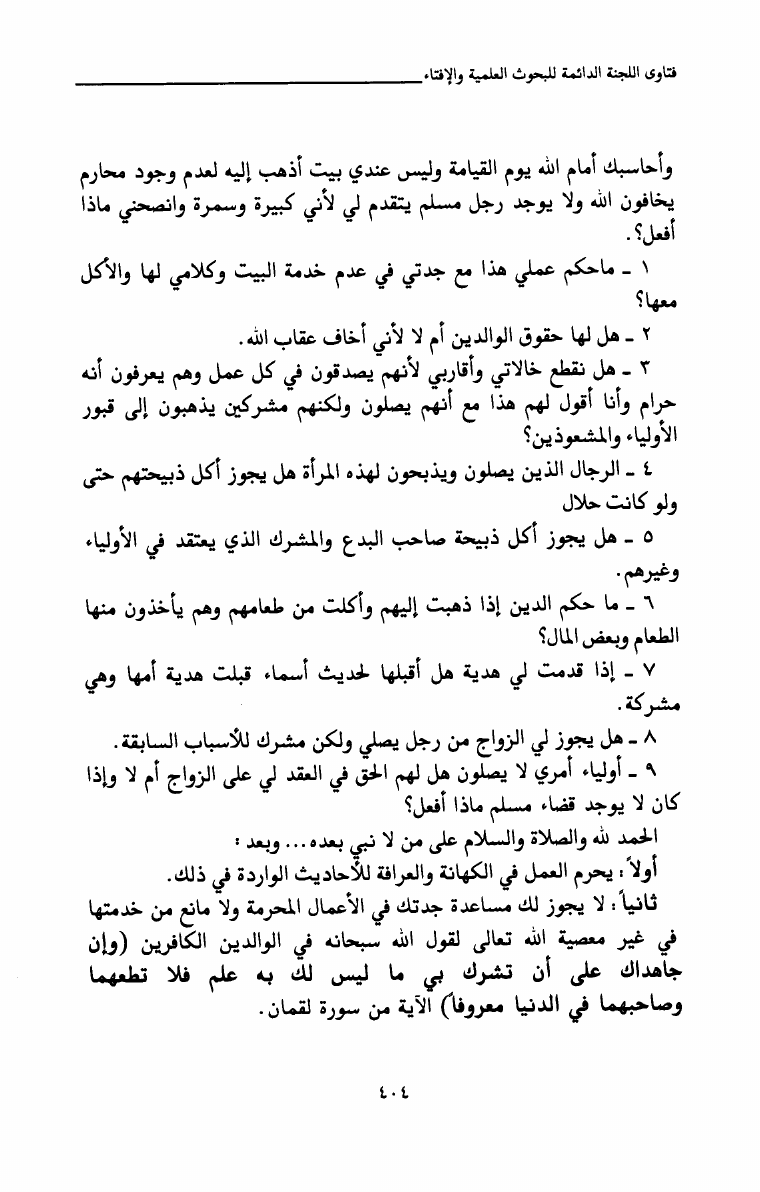 فتاوى اللجنة الدائمة للبحوث العلمية والإفتاء
وأحاسبك أمام الله يوم القيامة وليس عندي بيت أذهب إليه لعدم وجود محارم
يخافون الله ولا يوجد رجل مسلم يتقدم لي لأني كبيرة وسمرة وانصحني ماذا
أفعل؟.
١ - ماحكم عملي هذا مع جدتي في عدم خدمة البيت وكلامي لها والأكل
معها؟
٢ - هل لها حقوق الوالدين أم لا لأني أخاف عقاب الله.
٣ - هل نقطع خالاتي وأقاربي لأنهم يصدقون في كل عمل وهم يعرفون أنه
حرام وأنا أقول لهم هذا مع أنهم يصلون ولكنهم مشركين يذهبون إلى قبور
الأولياء والمشعوذين؟
٤ - الرجال الذين يصلون ويذبحون لهذه المرأة هل يجوز أكل ذبيحتهم حتى
ولو كانت حلال
٥ - هل يجوز أكل ذبيحة صاحب البدع والمشرك الذي يعتقد في الأولياء
وغيرهم.
٦ - ما حكم الدين إذا ذهبت إليهم وأكلت من طعامهم وهم يأخذون منها
الطعام وبعض المال؟
٧ - إذا قدمت لي هدية هل أقبلها لحديث أسماء قبلت هدية أمها وهي
مشركة.
٨ - هل يجوز لي الزواج من رجل يصلي ولكن مشرك للأسباب السابقة.
٩ - أولياء أمري لا يصلون هل لهم الحق في العقد لي على الزواج أم لا وإذا
كان لا يوجد قضاء مسلم ماذا أفعل؟
الحمد لله والصلاة والسلام على من لا نبي بعده... وبعد :
أولاً: يحرم العمل في الكهانة والعرافة للأحاديث الواردة في ذلك.
ثانياً: لا يجوز لك مساعدة جدتك في الأعمال المحرمة ولا مانع من خدمتها
في غير معصية الله تعالى لقول الله سبحانه في الوالدين الكافرين (وإن
جاهداك على أن تشرك بي ما ليس لك به علم فلا تطعهما
وصاحبهما في الدنيا معروفاً) الآية من سورة لقمان.
٤٠٤